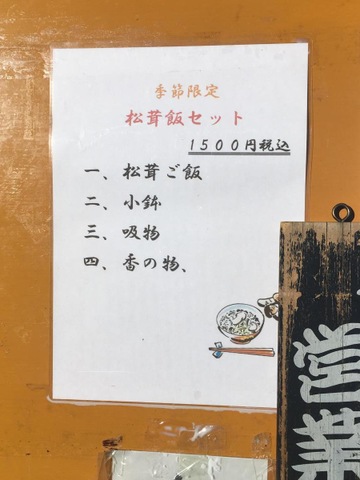 季節限定
松茸飯セット
1500円税込
一、松茸ご飯
二、小鉢
三、吸物
四、香の物、
営業